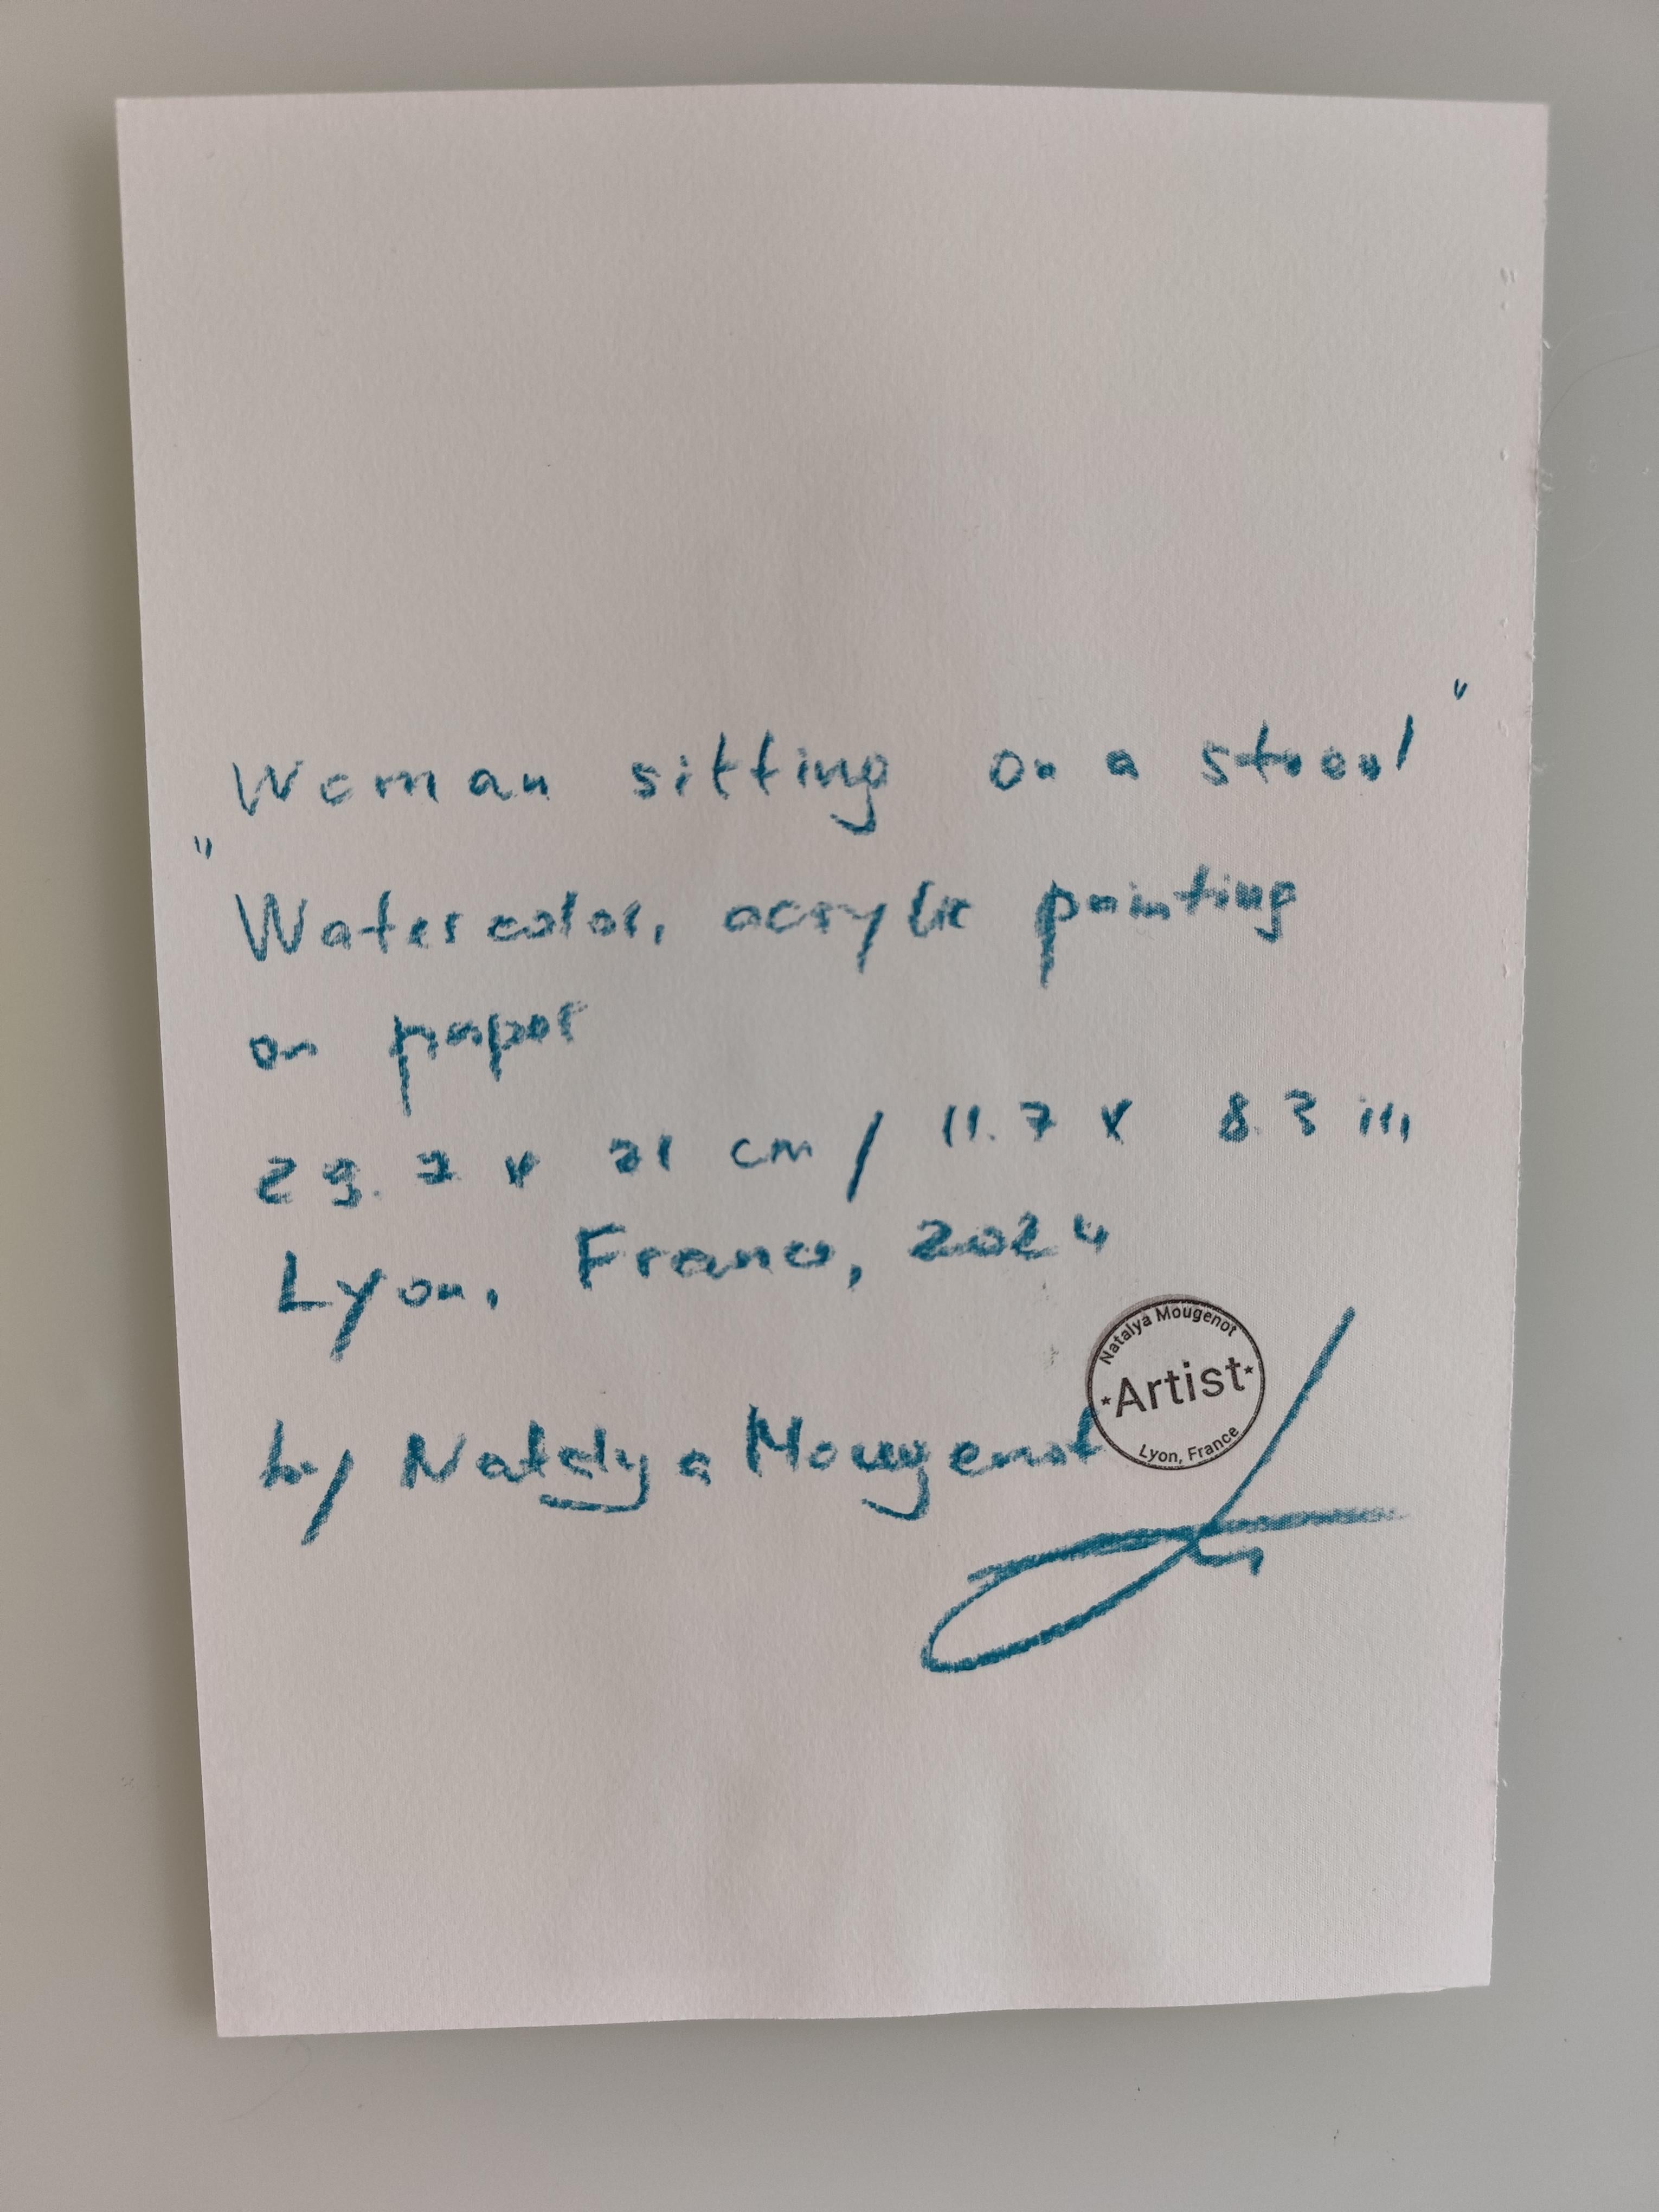 "Woman sitting on a stool"
Watercolor, acrylic painting
on paper
29.7 x 21 cm / 11.7 x 8.3 in
Lyon, France, 2024
by Natalya Mougenot
Natalya Mougenot
*Artist*
Lyon, France